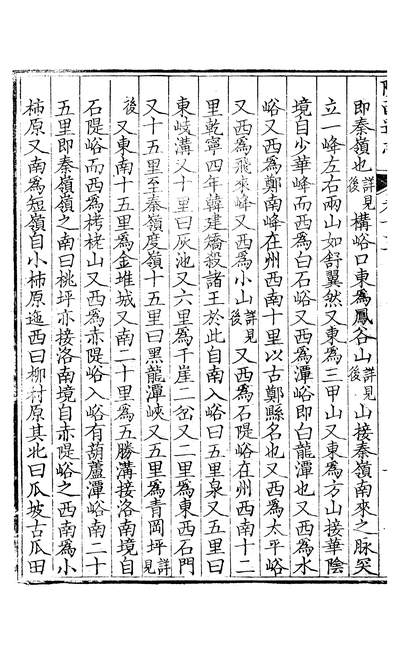 即秦嶺也詳見後構峪口東爲鳳谷山詳見後山接秦嶺南來之脉突
立一峰左右兩山如舒翼然又東爲三甲山又東爲方山接華陰
境自少華峰而西爲白石峪又西爲潭峪即白龍潭也又西爲水
峪又西爲鄭南峰在州西南十里以古鄭縣名也又西爲太平峪
又西爲飛來峰又西爲小山詳見後又西爲石隄峪在州西南十二
里乾寧四年韓建矯殺諸王於此自南入峪曰五里泉又五里曰
東岐溝又十里曰灰池又六里爲于崖二岔又二里爲東西石門
又十五里至秦嶺度嶺十五里曰黑龍潭峽又五里爲青岡坪詳見
後又東南十五里爲金堆城又南二十里爲五勝溝接洛南境自
石隄峪而西爲栲栳山又西爲赤隄峪入峪有葫蘆潭峪南二十
五里即秦嶺嶺之南曰桃坪亦接洛南境自赤隄峪之西南爲小
柿原又南爲短嶺自小柿原迤西曰柳村原其北曰瓜坡古瓜田